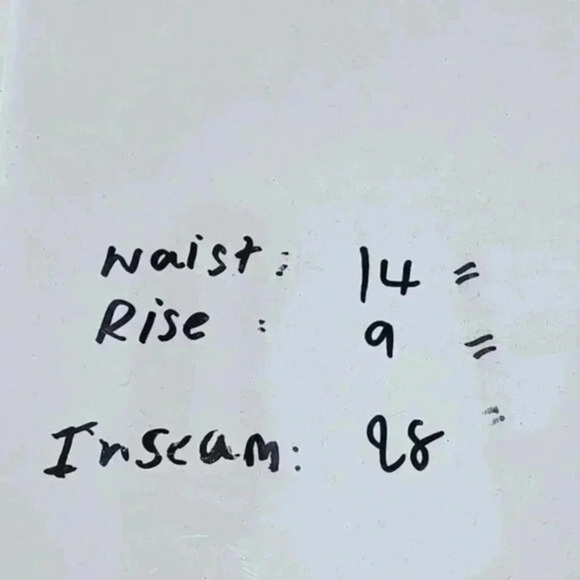 Waist: 14 "
Rise : 9 "
Inseam: 28 "